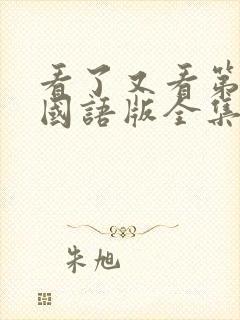 看了又看第
國語版全集
朱旭